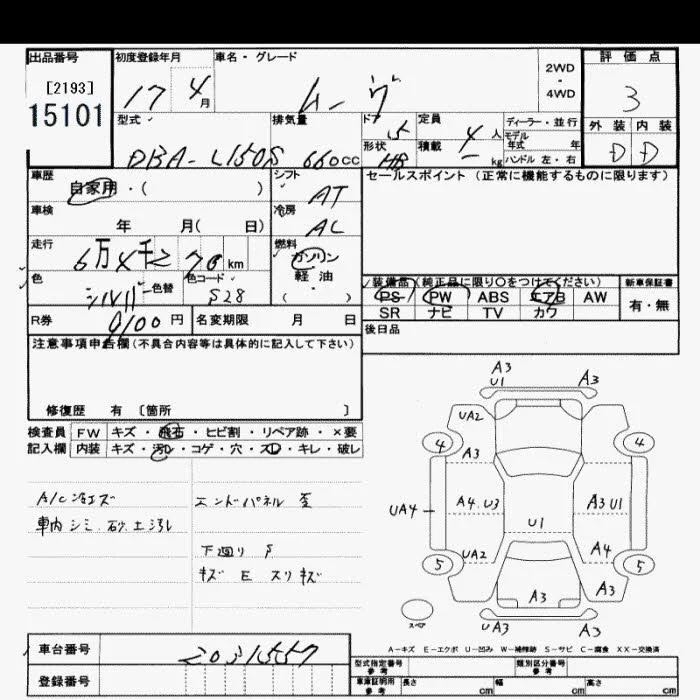 出品番号
[2193]
15101
初度登録年月
17 4月
車名・グレード
ムーヴ
2WD
・
4WD
評価点
3
外装 内装
D D
型式
DBA-L150S
排気量
660cc
ドア
5
形状
HB
定員
4人
積載
kg
ディーラー・並行
モデル
年式 年
ハンドル 左・右
車歴
自家用・( )
シフト
AT
セールスポイント (正常に機能するものに限ります)
車検
年 月( 日)
冷房
AC
走行
6万4千270km
燃料
ガソリン
軽油
( )
色
シルバ
色替
色コード
S28
装備品 (純正品に限り〇をつけてください)
PS PW ABS エアB AW
SR ナビ TV カワ
新車保証書
有・無
R券
9100円
名変期限 月 日
後日品
注意事項申告欄(不具合内容等は具体的に記入して下さい)
修復歴 有 〔箇所 〕
検査員 FW キズ・飛石・ヒビ割・リペア跡・×要
記入欄 内装 キズ・汚れ・コゲ・穴・スレ・キレ・破レ
車内シミ、砂、土汚れ
エンドパネル 歪
下廻り S
キズ E スリキズ
A3
U1
A3
UA2
4
4
A3
UA4
A4.U3
A3U1
U1
UA2
A4
5
5
A3
A3
スペア
UA3
A3
A-キズ E-エクボ U-凹み W-補修跡 S-サビ C-腐食 XX-交換済
車台番号
2031557
登録番号
型式指定番号
参考
類別区分番号
参考
車庫証明用
参考
長さ cm
幅 cm
高さ cm